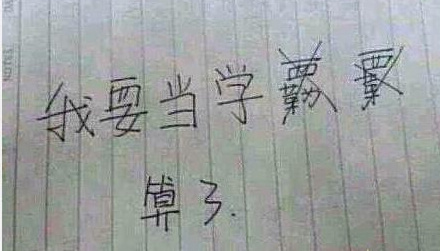 我要当学
算了.